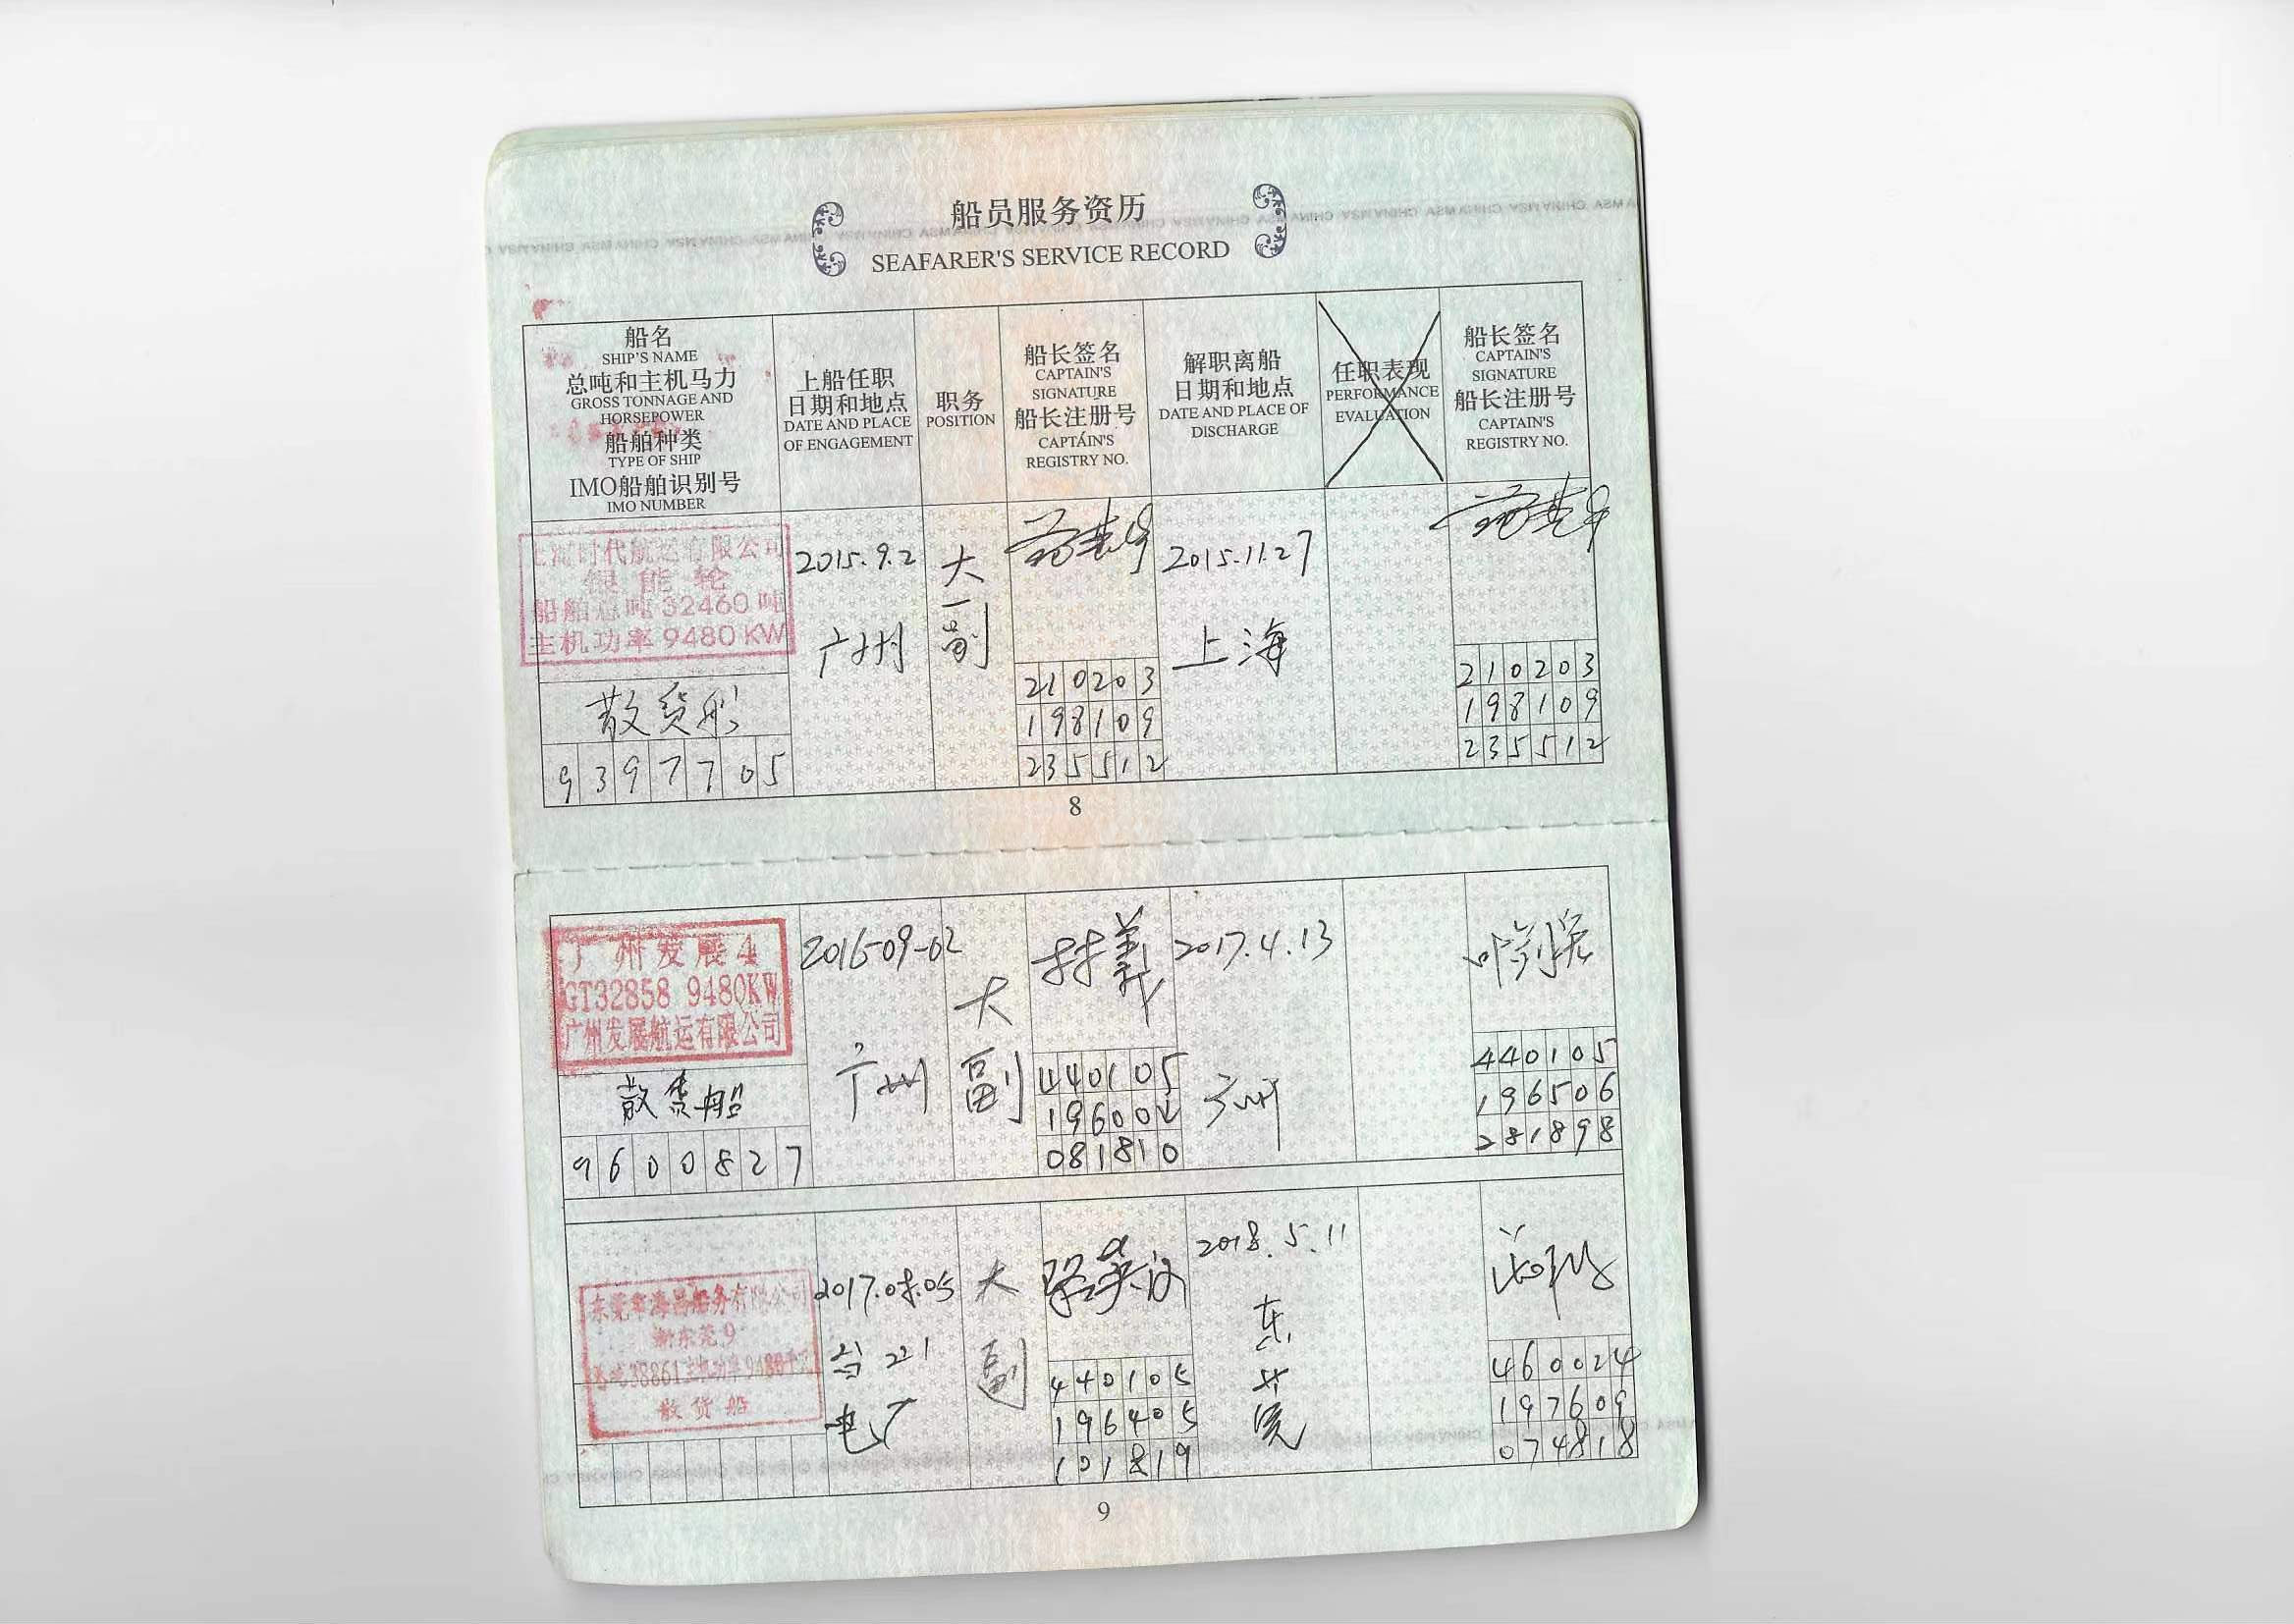 船员服务资历
SEAFARER'S SERVICE RECORD
船名
SHIP'S NAME
总吨和主机马力
GROSS TONNAGE AND
HORSEPOWER
船舶种类
TYPE OF SHIP
IMO船舶识别号
IMO NUMBER
上船任职
日期和地点
DATE AND PLACE
OF ENGAGEMENT
职务
POSITION
船长签名
CAPTAIN'S
SIGNATURE
船长注册号
CAPTAIN'S
REGISTRY NO.
解职离船
日期和地点
DATE AND PLACE OF
DISCHARGE
任职表现
PERFORMANCE
EVALUATION
船长签名
CAPTAIN'S
SIGNATURE
船长注册号
CAPTAIN'S
REGISTRY NO.
上海时代航运有限公司
银能轮
船舶总吨32460吨
主机功率9480KW
散货船
9397705
2015.9.2
广州
大副
210203
198109
235512
2015.11.27
上海
210203
198109
235512
8
广州发展4
GT32858 9480KW
广州发展航运有限公司
散货船
9600827
2016-09-02
广州
大副
林義
440105
196002
081810
2017.4.13
广州
440105
196506
281898
新东莞9
总吨38861主机功率9480千瓦
散货船
2017.08.05
电厂
大副
440105
196405
101819
2018.5.11
东莞
460024
197609
074818
9